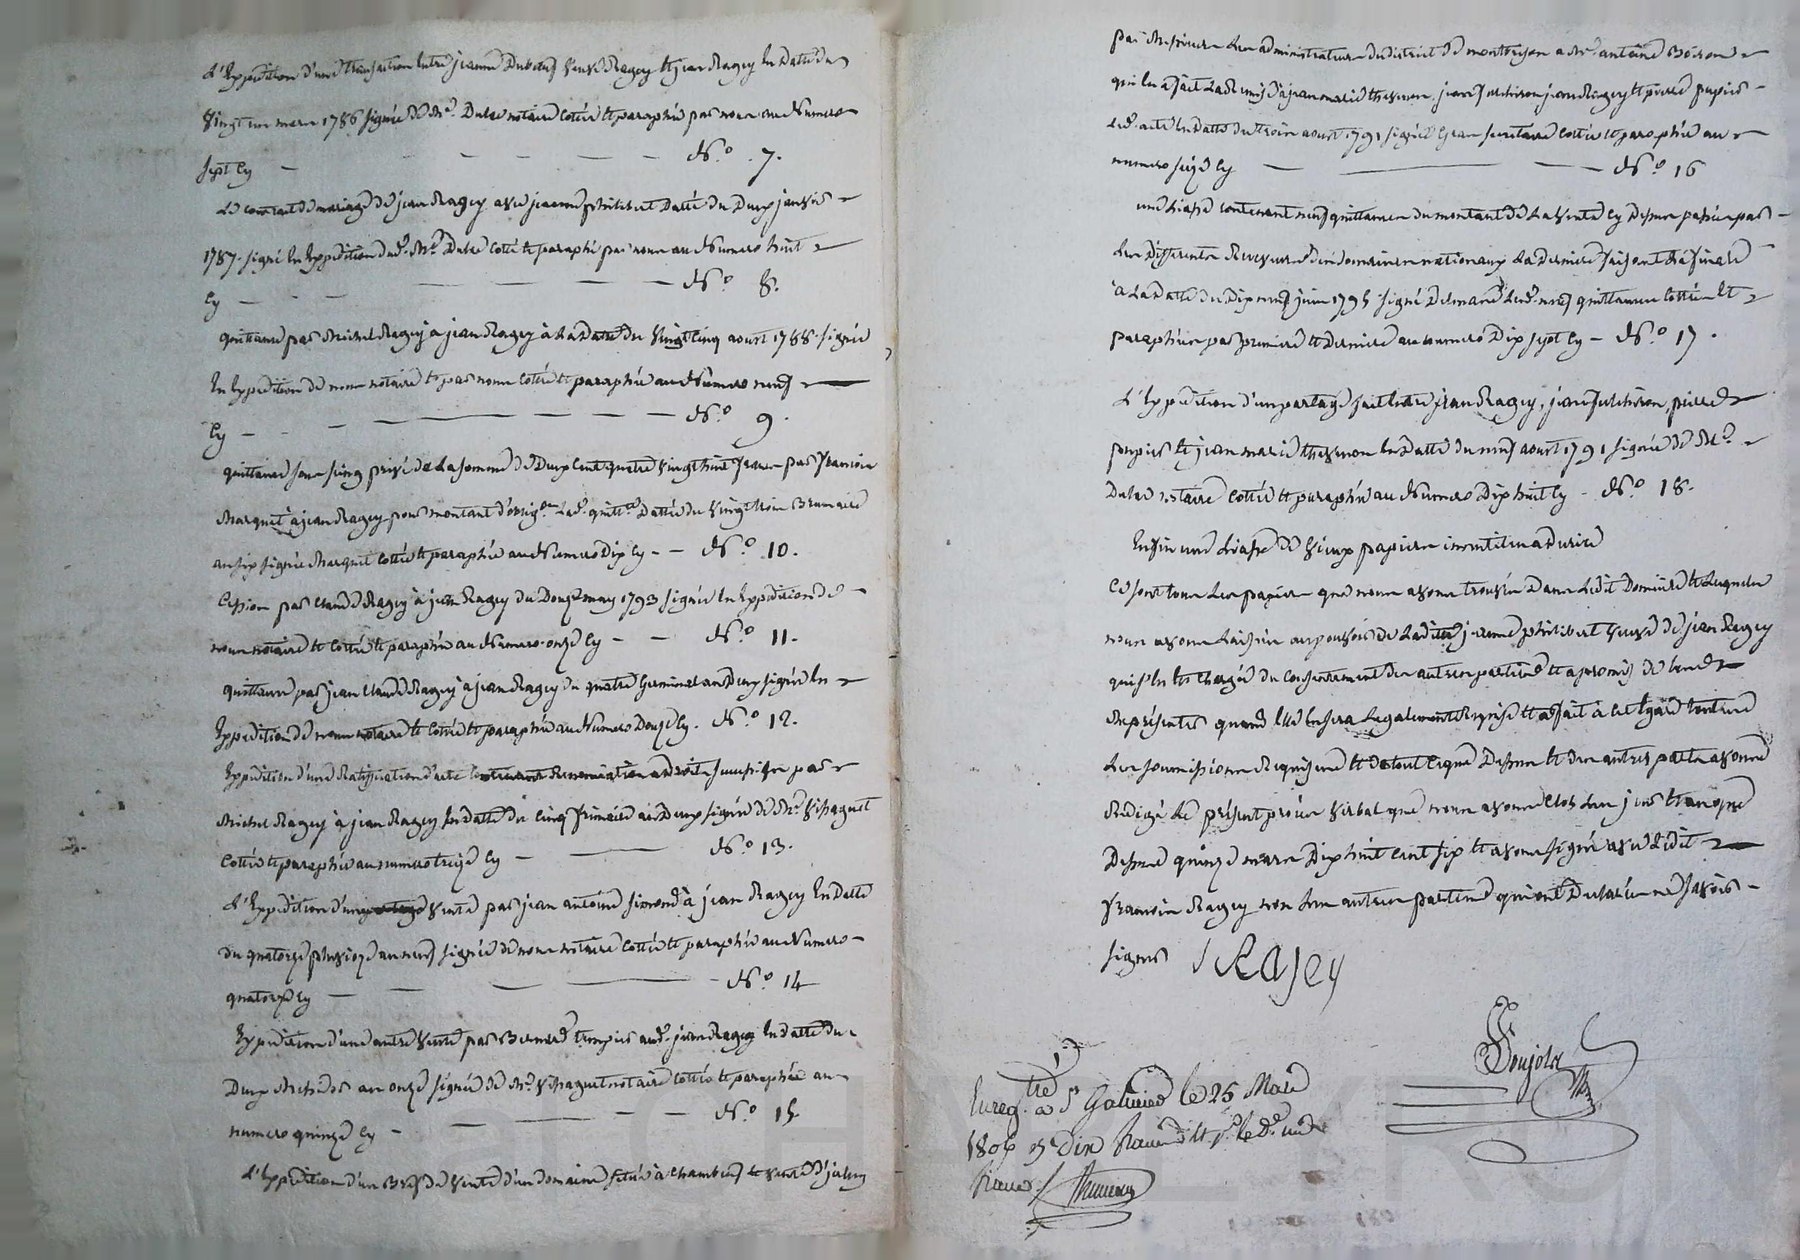 L'Expedition d'une transaction entre jeanne Duboeuf veuve Ragey et jean Ragey en datte du
Vingt un mars 1786 signée de Me. Dubre notaire cottée et paraphée par nous au Numero
sept cy — N.o 7.
Le contract de mariage de jean Ragey avec jeanne philibert datté du Deux janvier
1787. signé en Expedition dud. Me. Dubre cotté et paraphé par nous au Numero huit
cy — N.o 8.
quittance par Michel Ragey a jean Ragey à la Datte du Vingt cinq aoust 1788. signée
en Expedition de nous notaire et par nous cottée et paraphée au Numero neuf
cy — N.o 9.
quittance sous seing privé de la somme de Deux Cent quatre vingt huit francs par francois
Marquet à jean Ragey pour montant d'oblig.on lad. quitt.ce Dattée du Vingt trois Brumaire
an six signée Marquet cottée et paraphée au Numero Dix cy — N.o 10.
Cession par Claude Ragey à jean Ragey du Douze may 1793 signée en Expedition de
nous notaire et cottée et paraphée au Numero onze cy — N.o 11.
quittance par jean Claude Ragey à jean Ragey du quatre Germinal an Deux signée en
Expedition de nous notaire et cottée et paraphée au Numero Douze cy. N.o 12.
Expedition d'une Ratiffication d'acte contenant Renonciation a droits par
Michel Ragey à jean Ragey en datte du cinq frimaire an Deux signée de Me.
cottée et paraphée au numero treize cy — N.o 13.
L'Expedition d'une vente par jean antoine simond à jean Ragey en Datte
du quatorze pluviose an neuf signée de nous notaire cottée et paraphée au Numero
quatorze cy — N.o 14
Expedition d'une autre vente par Bernard aud. jean Ragey en datte du
Deux an onze signée de Me. notaire cottée et paraphée au
numero quinze cy — N.o 15.
L'Expedition d'un Bref de vente d'un domaine situé à Chambeuf
par Messieurs Les administrateurs du district de montbrison a Me. antoine
qui en a fait jean marie thevenon, jean jean Ragey et pierre pupier
led. acte en Datte du trois aoust 1791 signée secretaire cottée et paraphée au
numero seize cy — N.o 16
une Liasse contenant neuf quittances du montant de La vente cy Dessus passée par
Les differents Receveurs des domaines nationaux La Derniere faisant La finale
à La Datte du Dix neuf juin 1795 signé lesd. neuf quittances cottées et
paraphées par premiere et Derniere au numero Dix sept cy — N.o 17.
L'Expedition d'un partage fait entre jean Ragey, jean pierre
pupier et jean marie thevenon en Datte du neuf aoust 1791 signée de Me.
Dubre notaire cottée et paraphée au Numero Dix huit cy — N.o 18.
Enfin une Liasse de vieux papiers inventorié
Ce sont tous Les papiers que nous avons trouvés Dans Ledit Domicile et Lesquels
nous avons Laissés au pouvoir de Laditte jeanne philibert veuve de jean Ragey
qui s'en est chargée du consentement des autres parties et a promis de les
Représenter quand Elle En sera Legalement Requise et a fait à cet Egard toutes
Les soumissions Requises et de tout ce que Dessus et des autres parts avons
Redigé Le présent procès verbal que nous avons clos Les jour et an que
Dessus quinze mars Dix huit cent six et avons signé avec Ledit
francois Ragey non Les autres parties qui ont Declaré ne savoir
signer f Ragey
Enreg.tré a St Galmier le 25 Mars
1806